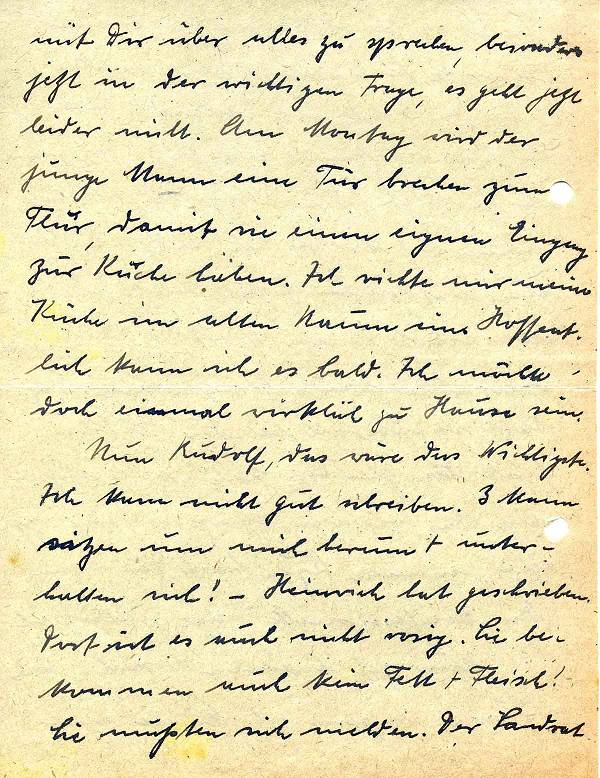 mit Dir über alles zu sprechen, besonders
jetzt in der wichtigen Frage, es geht jetzt
leider nicht. Am Montag wird der
junge Mann eine Tür brechen zum
Flur, damit sie einen eignen Eingang
zur Küche haben. Ich richte mir meine
Küche im alten Raum ein. Hoffent-
lich kann ich es bald. Ich möchte
doch einmal wirklich zu Hause sein.
Nun Rudolf, das wäre das Wichtigste.
Ich kann nicht gut schreiben. 3 Mann
sitzen um mich herum + unter-
halten sich! – Heinrich hat geschrieben.
Dort ist es auch nicht rosig. Sie be-
kommen auch kein Fett + Fleisch!
Sie mußten sich melden. Der Landrat